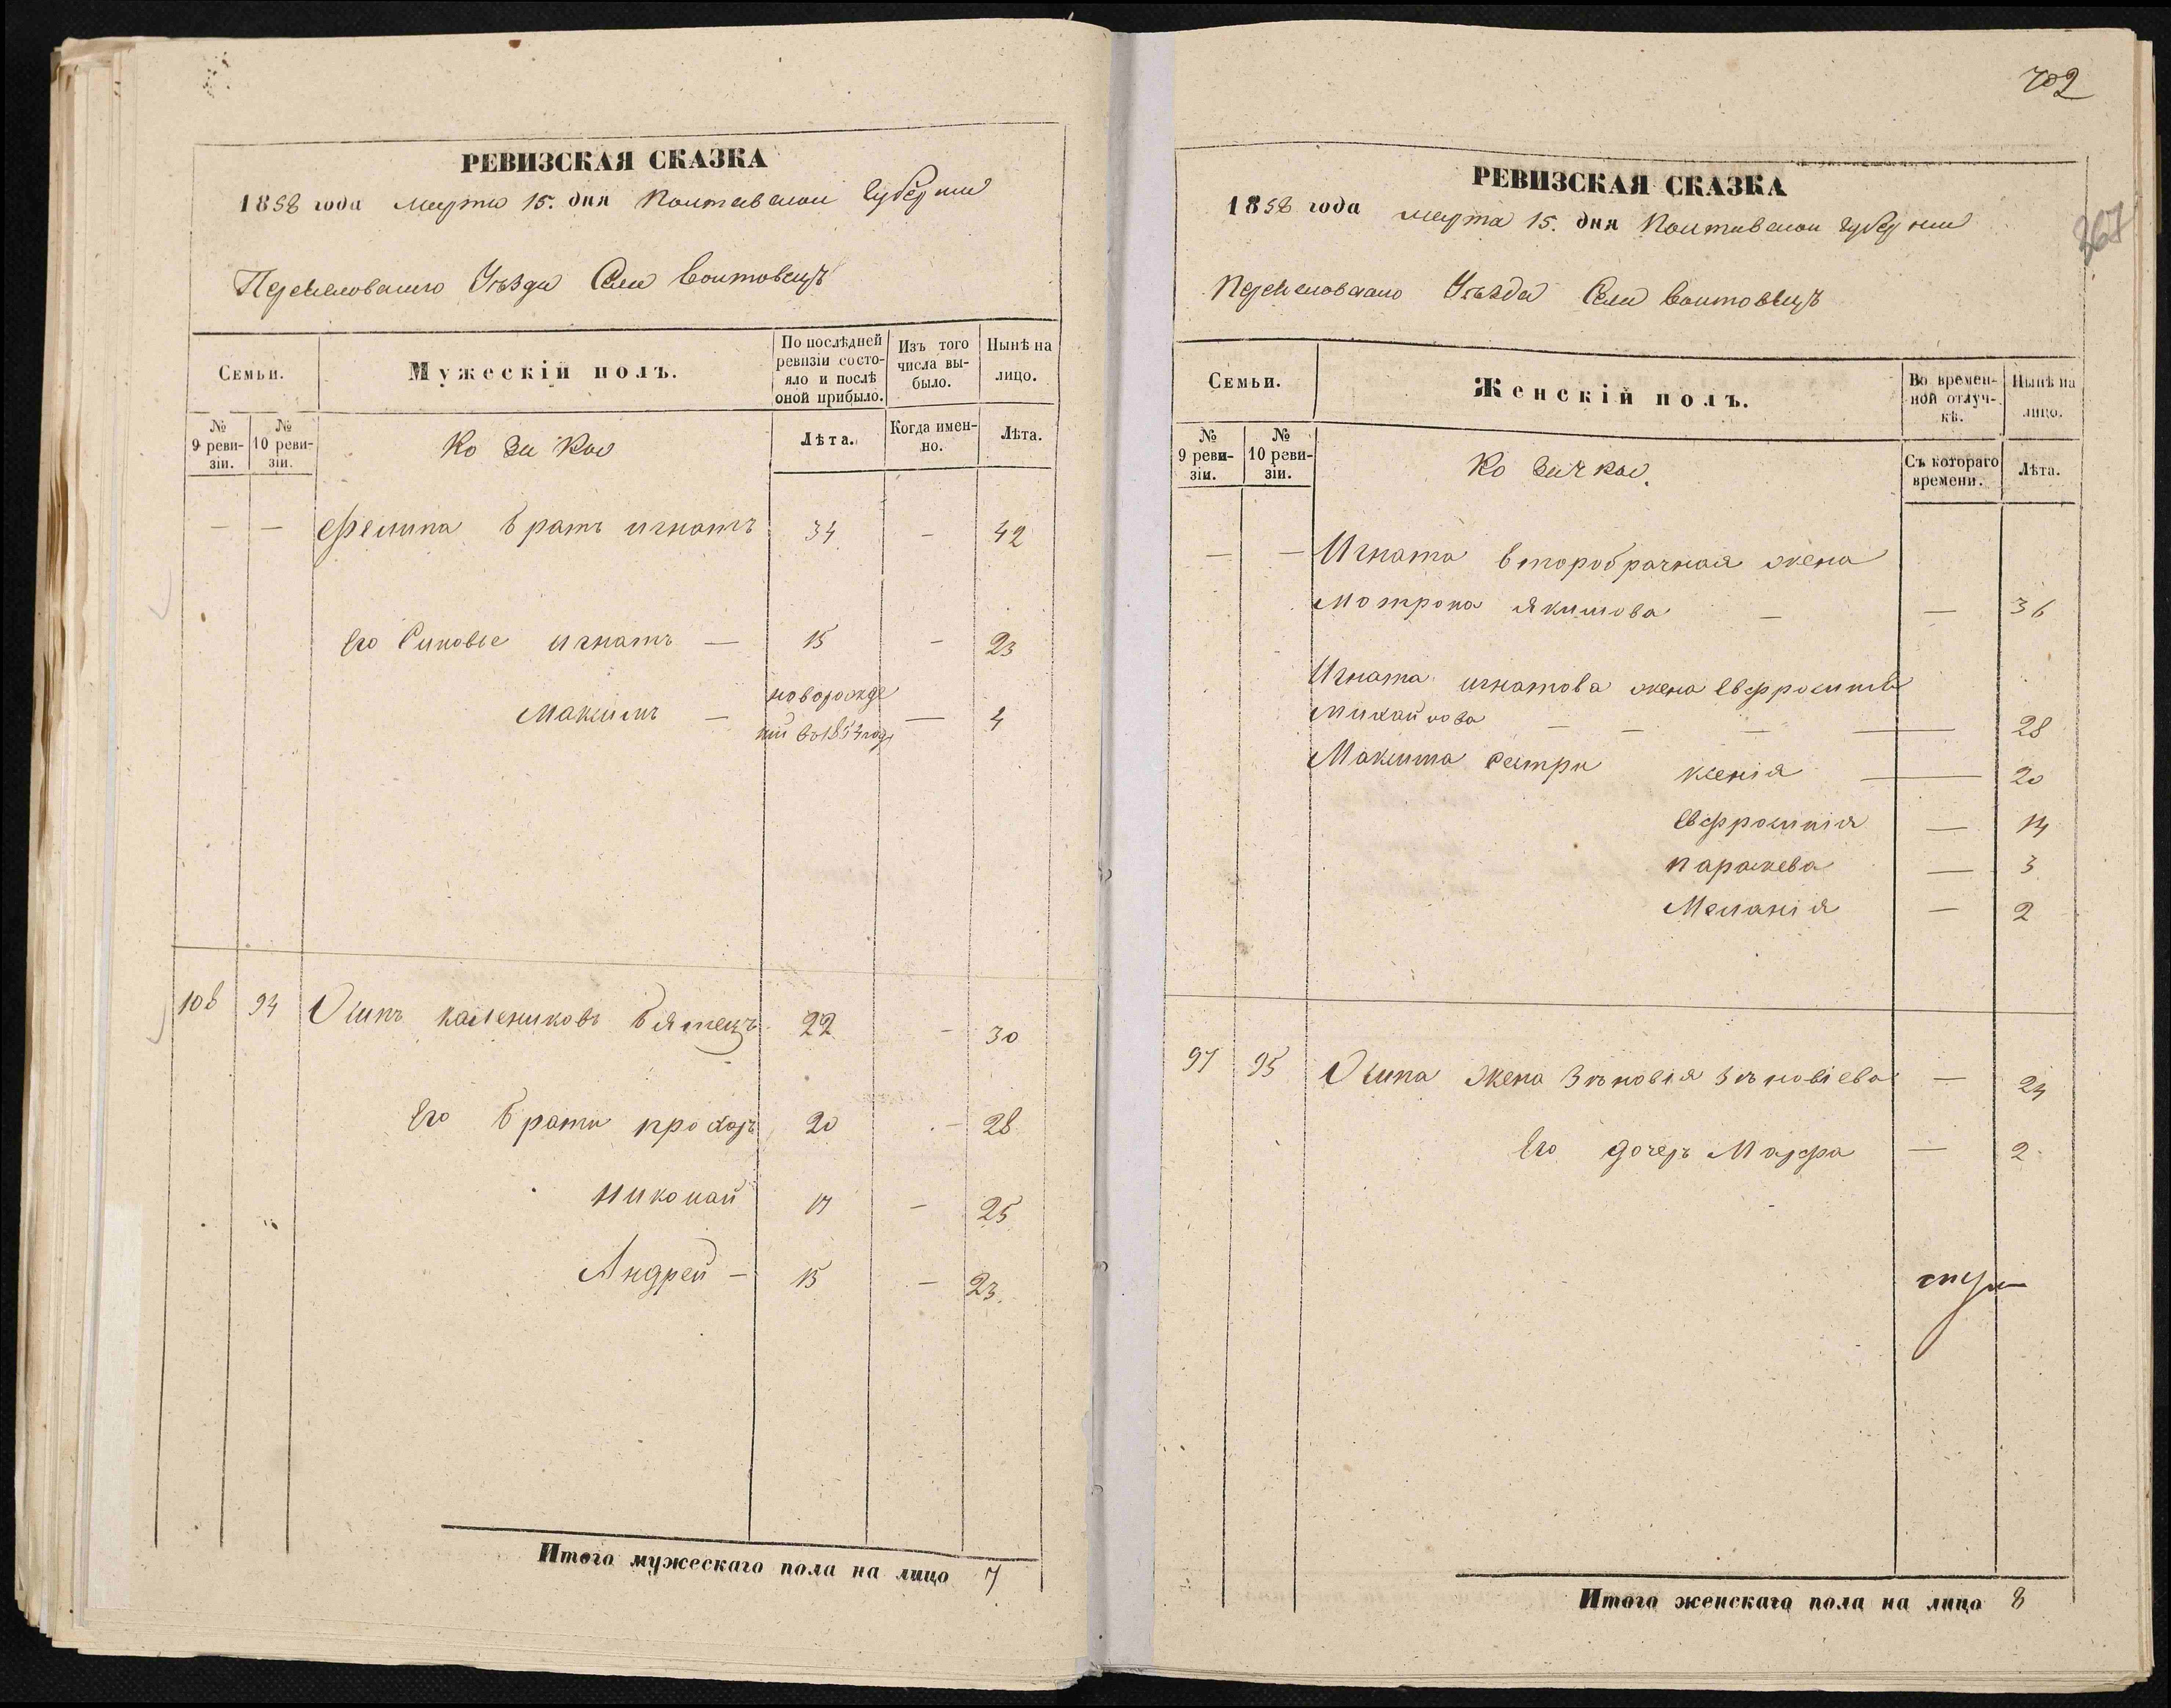 РЕВИЗСКАЯ СКАЗКА
1858 года марта 15. дня Полтавской губернии
Переяславского Уѣзда Села Войтовецъ
Семьи.
Мужескій полъ.
По послѣдней ревизіи состояло и послѣ оной прибыло.
Изъ того числа выбыло.
Нынѣ на лицо.
№ 9 ревизіи.
№ 10 ревизіи.
Козаков
Лѣта.
Когда именно.
Лѣта.
— — Филипа братъ игнатъ 34 — 42
Его Синовье игнатъ — 15 — 23
Максимъ — новорожде
ний во 1854 году — 4
108 94 Осипъ калениковъ Бятецъ 22 — 30
Его брати прохоръ 20 — 28
николай 17 — 25
Андрей — 15 — 23.
Итого мужескаго пола на лицо 7
702
367
РЕВИЗСКАЯ СКАЗКА
1858 года марта 15. дня Полтавской губернии
Переяславского Уѣзда Села Войтовецъ
Семьи.
Женскій полъ.
Во временной отлучкѣ.
Нынѣ на лицо.
№ 9 ревизіи.
№ 10 ревизіи.
Козачков.
Съ котораго времени.
Лѣта.
— — Игната второбрачная жена
Мотрона Якимова — — 36
Игната игнатова жена Евфросинія
Михайлова — — — — 28
Максима сестри ксенія — 20
Евфросинія — 14
параскева — 3
Меланія — 2
97 95 Осипа жена Зѣновія Зѣновіева — 24
Его дочеръ Марфа — 2
Итого женскаго пола на лицо 8